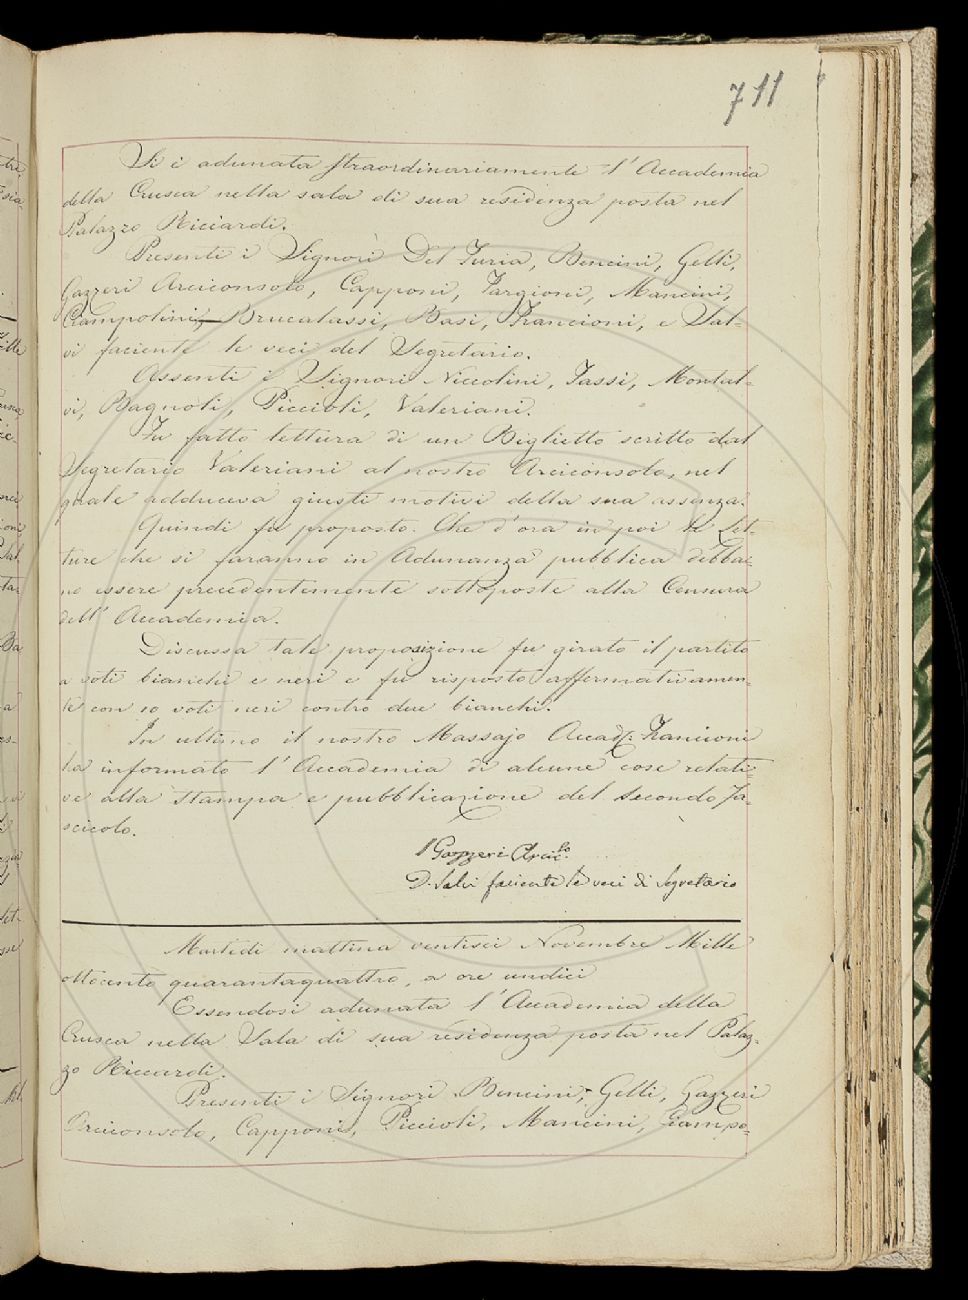 711
Si è adunata straordinariamente l'Accademia
della Crusca nella sala di sua residenza posta nel
Palazzo Riciardi.
Presenti i Signori Del Furia, Bencini, Gelli,
Gazzeri Arciconsolo, Capponi, Targioni, Mancini,
Ciampolini, Brucalassi, Basi, Francioni, e Sal-
vi faciente le veci del Segretario.
Assenti i Signori Niccolini, Tassi, Montal-
vi, Bagnoli, Piccioli, Valeriani.
Fu fatto lettura di un Biglietto scritto dal
Segretario Valeriani al nostro Arciconsolo, nel
quale adduceva giusti motivi della sua assenza.
Quindi fu proposto. Che d'ora in poi le Let-
ture che si faranno in Adunanza pubblica debba-
no essere precedentemente sottoposte alla Censura
dell'Accademia.
Discussa tale proposizione fu girato il partito
a voti bianchi e neri e fù risposto affermativamen-
te con 10 voti neri contro due bianchi.
In ultimo il nostro Massajo Accad. Francioni
ha informato l'Accademia di alcune cose relati-
ve alla stampa e pubblicazione del secondo Fa-
scicolo.
Gazzeri Arcic.lo
D. Salvi faciente le veci di Segretario
Martedi mattina ventisei Novembre Mille
ottocento quarantaquattro, a ore undici
Essendosi adunata l'Accademia della
Crusca nella Sala di sua residenza posta nel Palaz-
zo Riccardi.
Presenti i Signori Bencini, Gelli, Gazzeri
Arciconsolo, Capponi, Piccioli, Mancini, Ciampo-